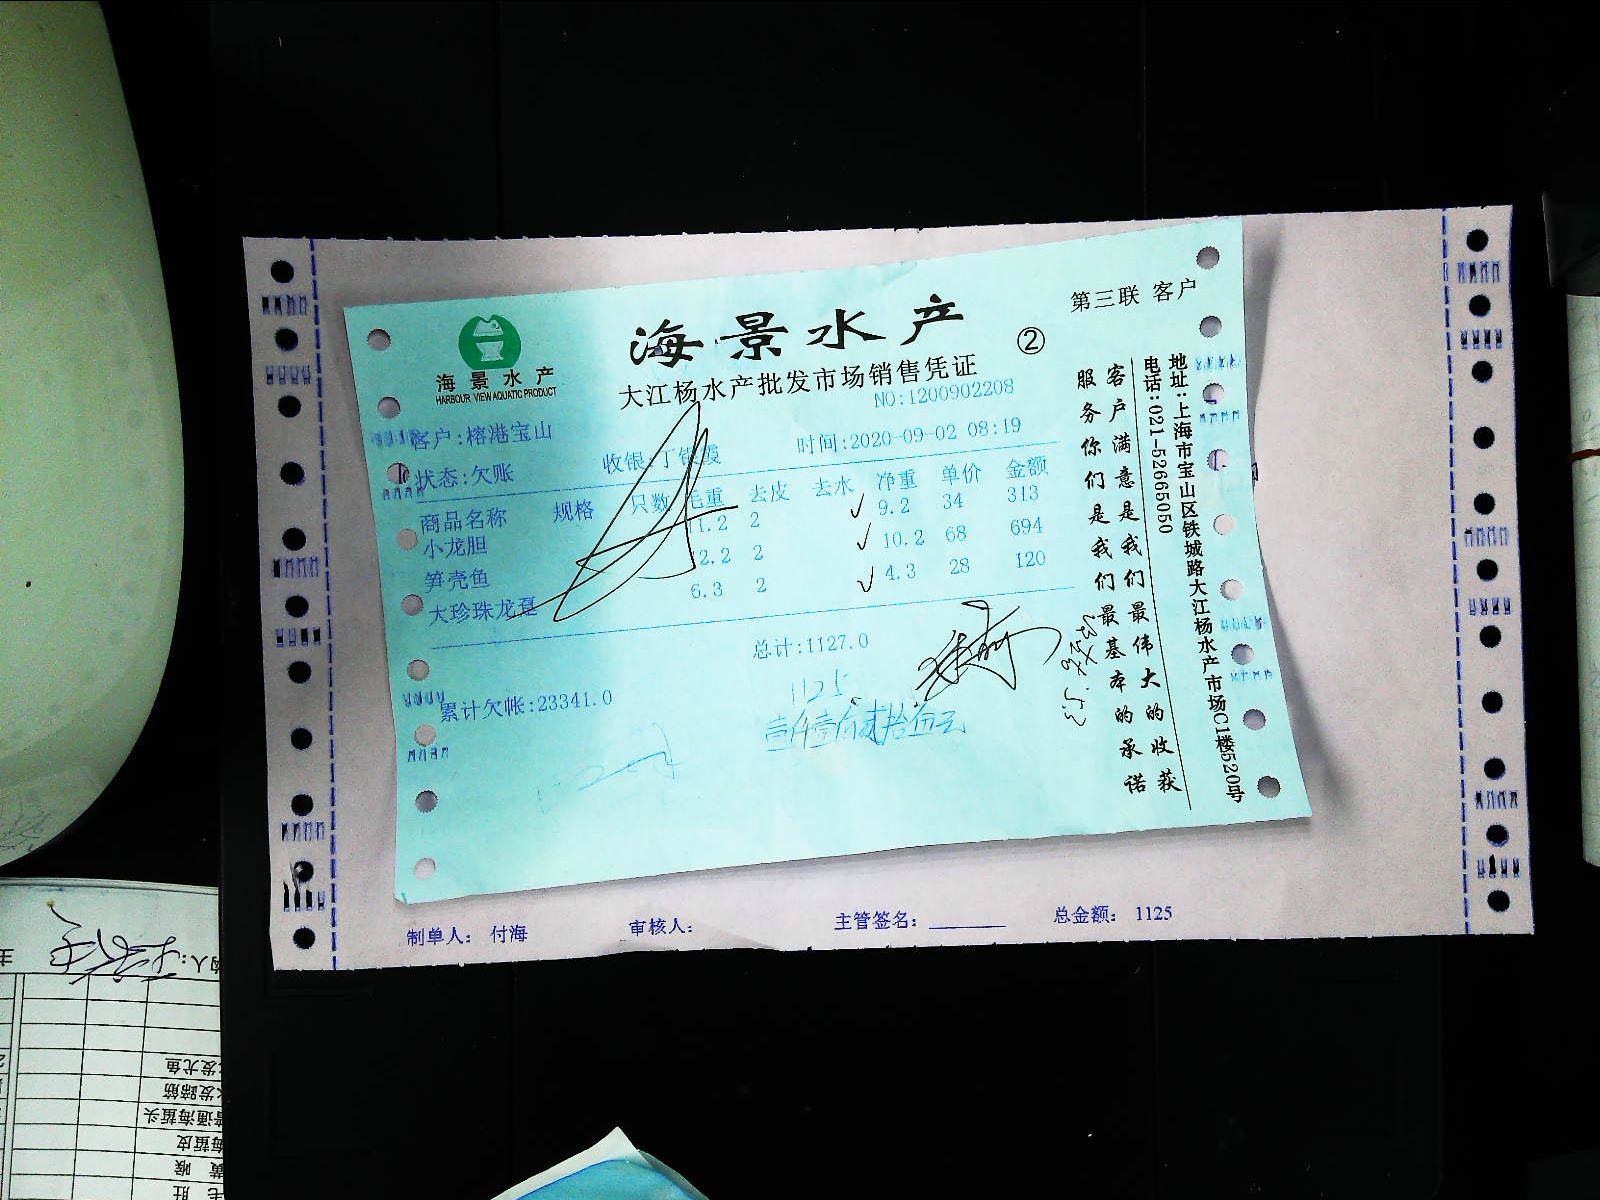 第三联 客户
海景水产
HARBOUR VIEW AQUATIC PRODUCT
海景水产
②
大江杨水产批发市场销售凭证
NO:1200902208
客户:榕港宝山
状态:欠账 收银:丁银霞 时间:2020-09-02 08:19
商品名称 规格 只数 毛重 去皮 去水 净重 单价 金额
小龙胆 11.2 2 9.2 34 313
笋壳鱼 12.2 2 10.2 68 694
大珍珠龙趸 6.3 2 4.3 28 120
总计:1127.0
累计欠帐:23341.0
1125
壹仟壹佰贰拾伍元
客户满意是我们最伟大的收获
服务你们是我们最基本的承诺
地址:上海市宝山区铁城路大江杨水产市场C1楼520号
电话:021-52665050
制单人: 付海 审核人: 主管签名: 总金额: 1125
发尤鱼
发蹄筋
普通海蜇头
海蜇皮
黄 喉
毛 肚